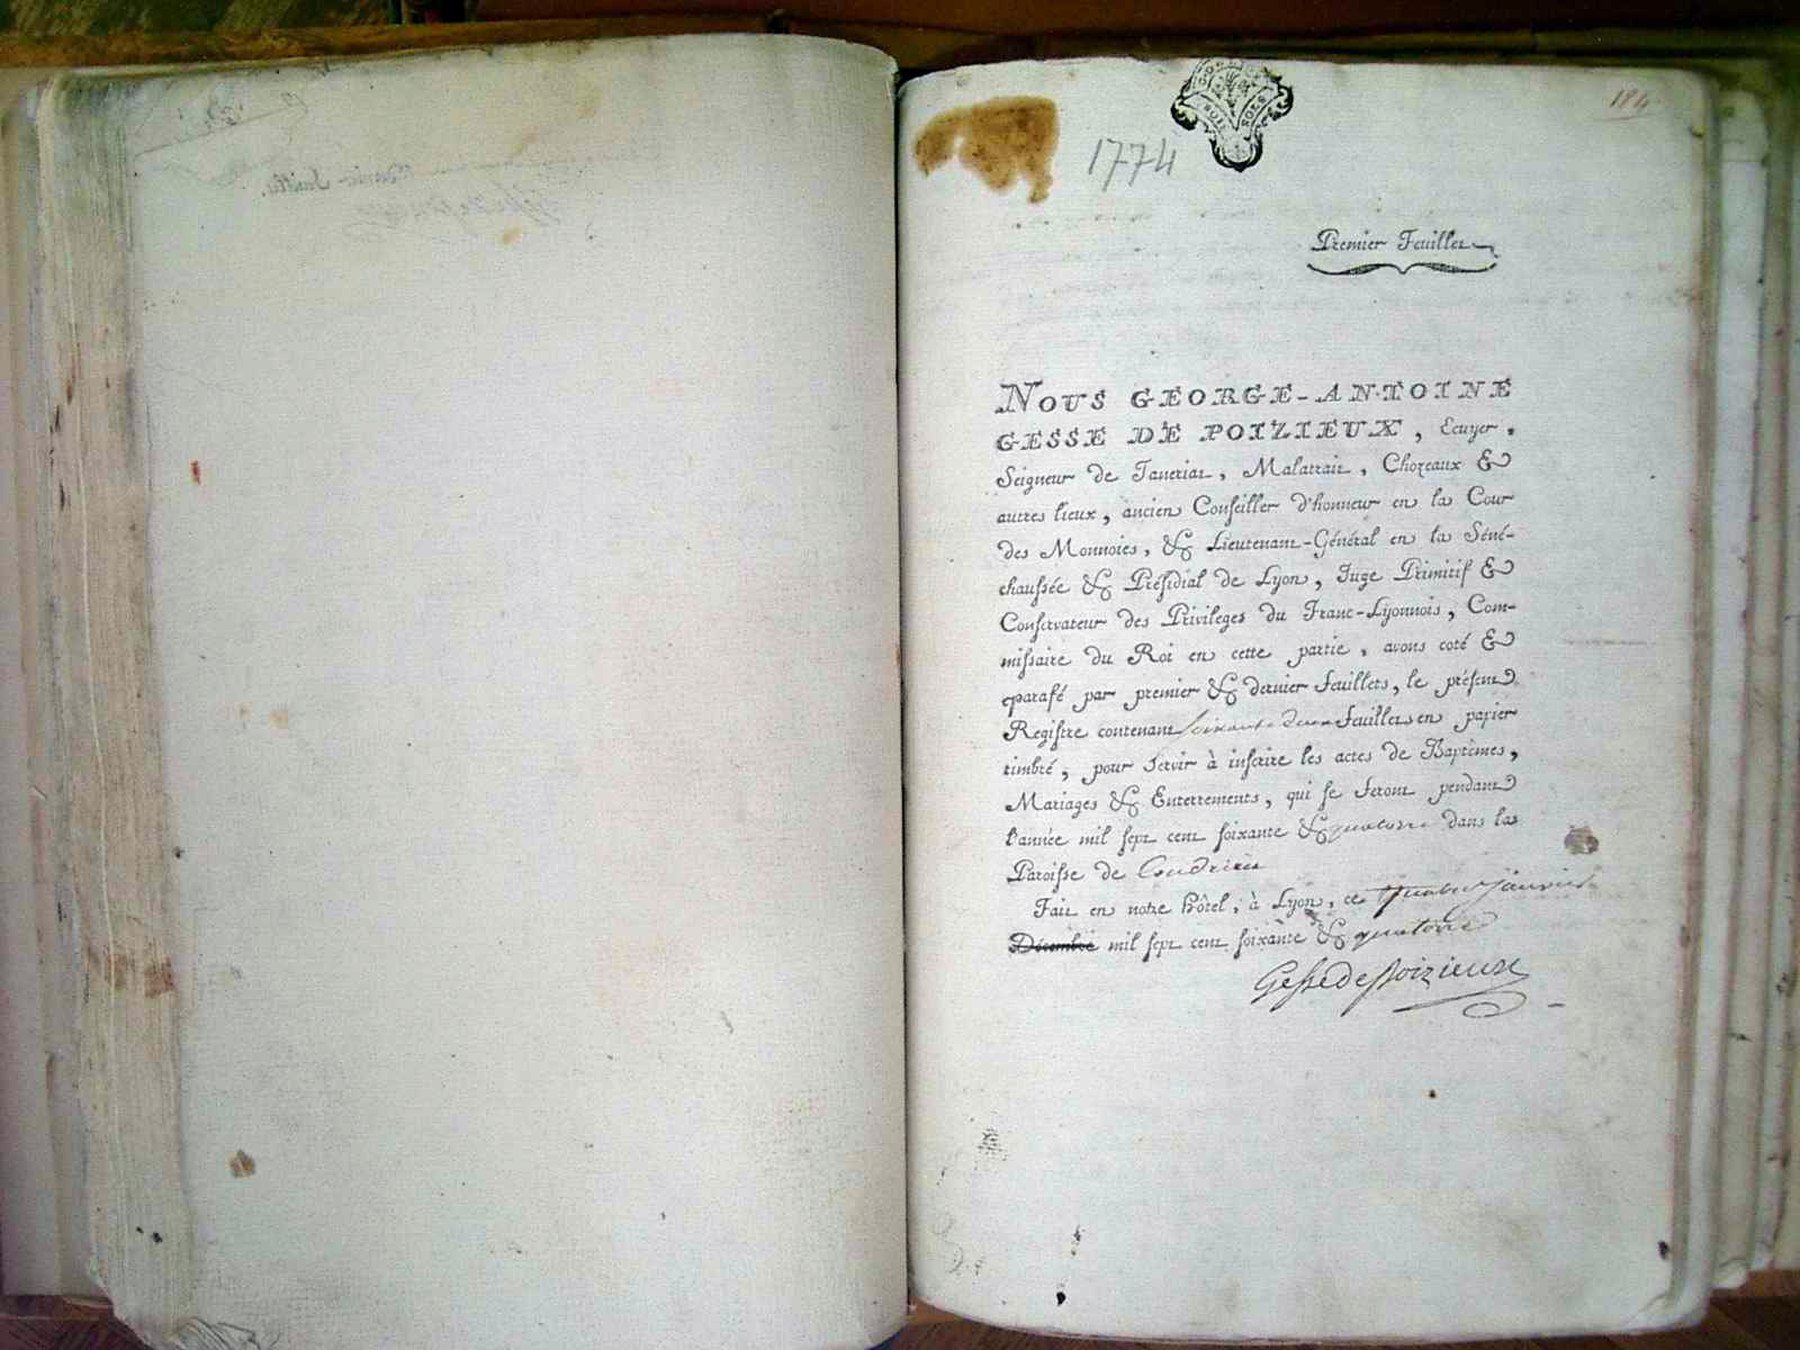 1774
184
SOLS
Premier Feuillet
NOUS GEORGE-ANTOINE
GESSE DE POIZIEUX, Ecuyer,
Seigneur de Janeriat, Malatrait, Chozeaux &
autres lieux, ancien Conseiller d'honneur en la Cour
des Monnoies, & Lieutenant-Général en la Séné-
chaussée & Présidial de Lyon, Juge Primitif &
Conservateur des Privileges du Franc-Lyonnois, Com-
missaire du Roi en cette partie, avons coté &
parafé par premier & dernier Feuillets, le présent
Registre contenant soixante deux Feuillets en papier
timbré, pour servir à inscrire les actes de Baptêmes,
Mariages & Enterrements, qui se feront pendant
l'année mil sept cent soixante & quatorze dans la
Paroisse de Condrieu
Fait en notre hôtel, à Lyon, ce quatre janvier
Décembre mil sept cent soixante & quatorze
Gesse de Poizieux